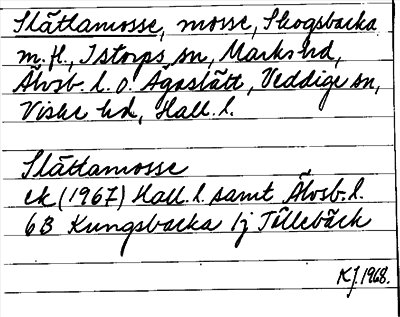 Slättamosse, mosse, Skogsbacka
m.fl., Istorps sn, Marks hd,
Älvsb. l. o. Ågaslätt, Veddige sn,
Viske hd, Hall. l.
Slättamosse
ek (1967) Hall. l. samt Älvsb. l.
6B Kungsbacka 1j Tällebäck
KJ. 1968.